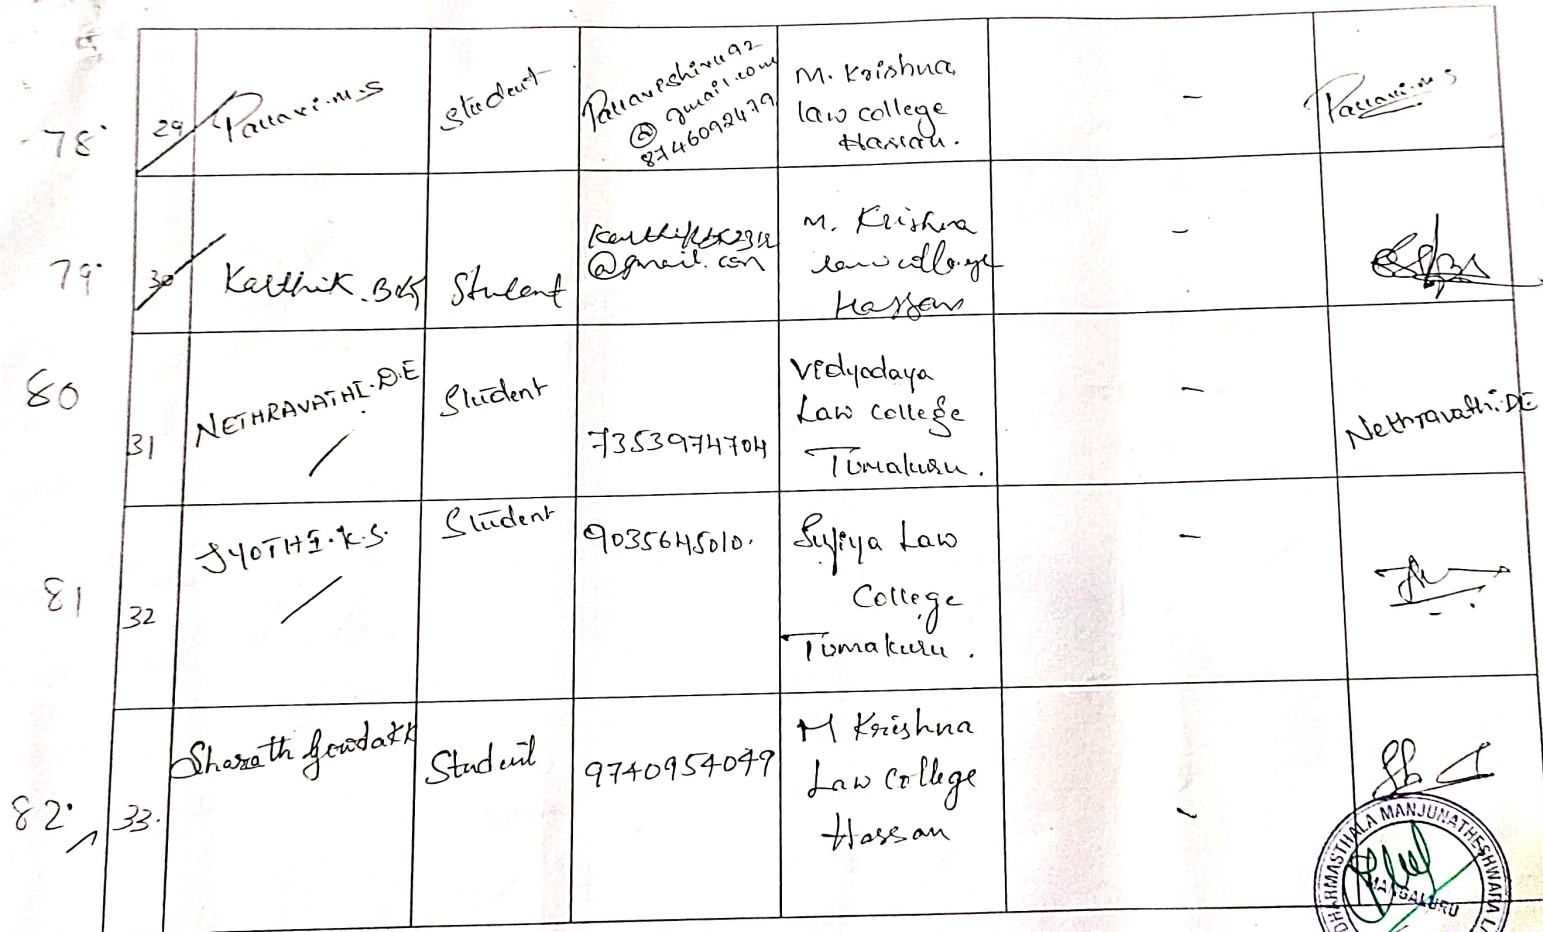 78
29
Pallavi.M.S
Student
Pallaveshivu92
@ gmail.com
8746092479
M. Krishna
law college
Hassan.
-
Pallavi.M.S
79
30
Karthik.
Student
@gmail.com
M. Krishna
law college
Hassan
-
80
31
NETHRAVATHI.D.E
Student
7353974704
Vidyodaya
Law College
Tumakuru.
-
Nethravathi.DE
81
32
JYOTHI.K.S.
Student
9035645010.
Sufiya Law
College
Tumakuru.
-
82
33.
Sharath Gowda KK
Student
9740954049
M Krishna
Law College
Hassan
-
DHARMASTHALA MANJUNATHESHWARA
MANGALURU